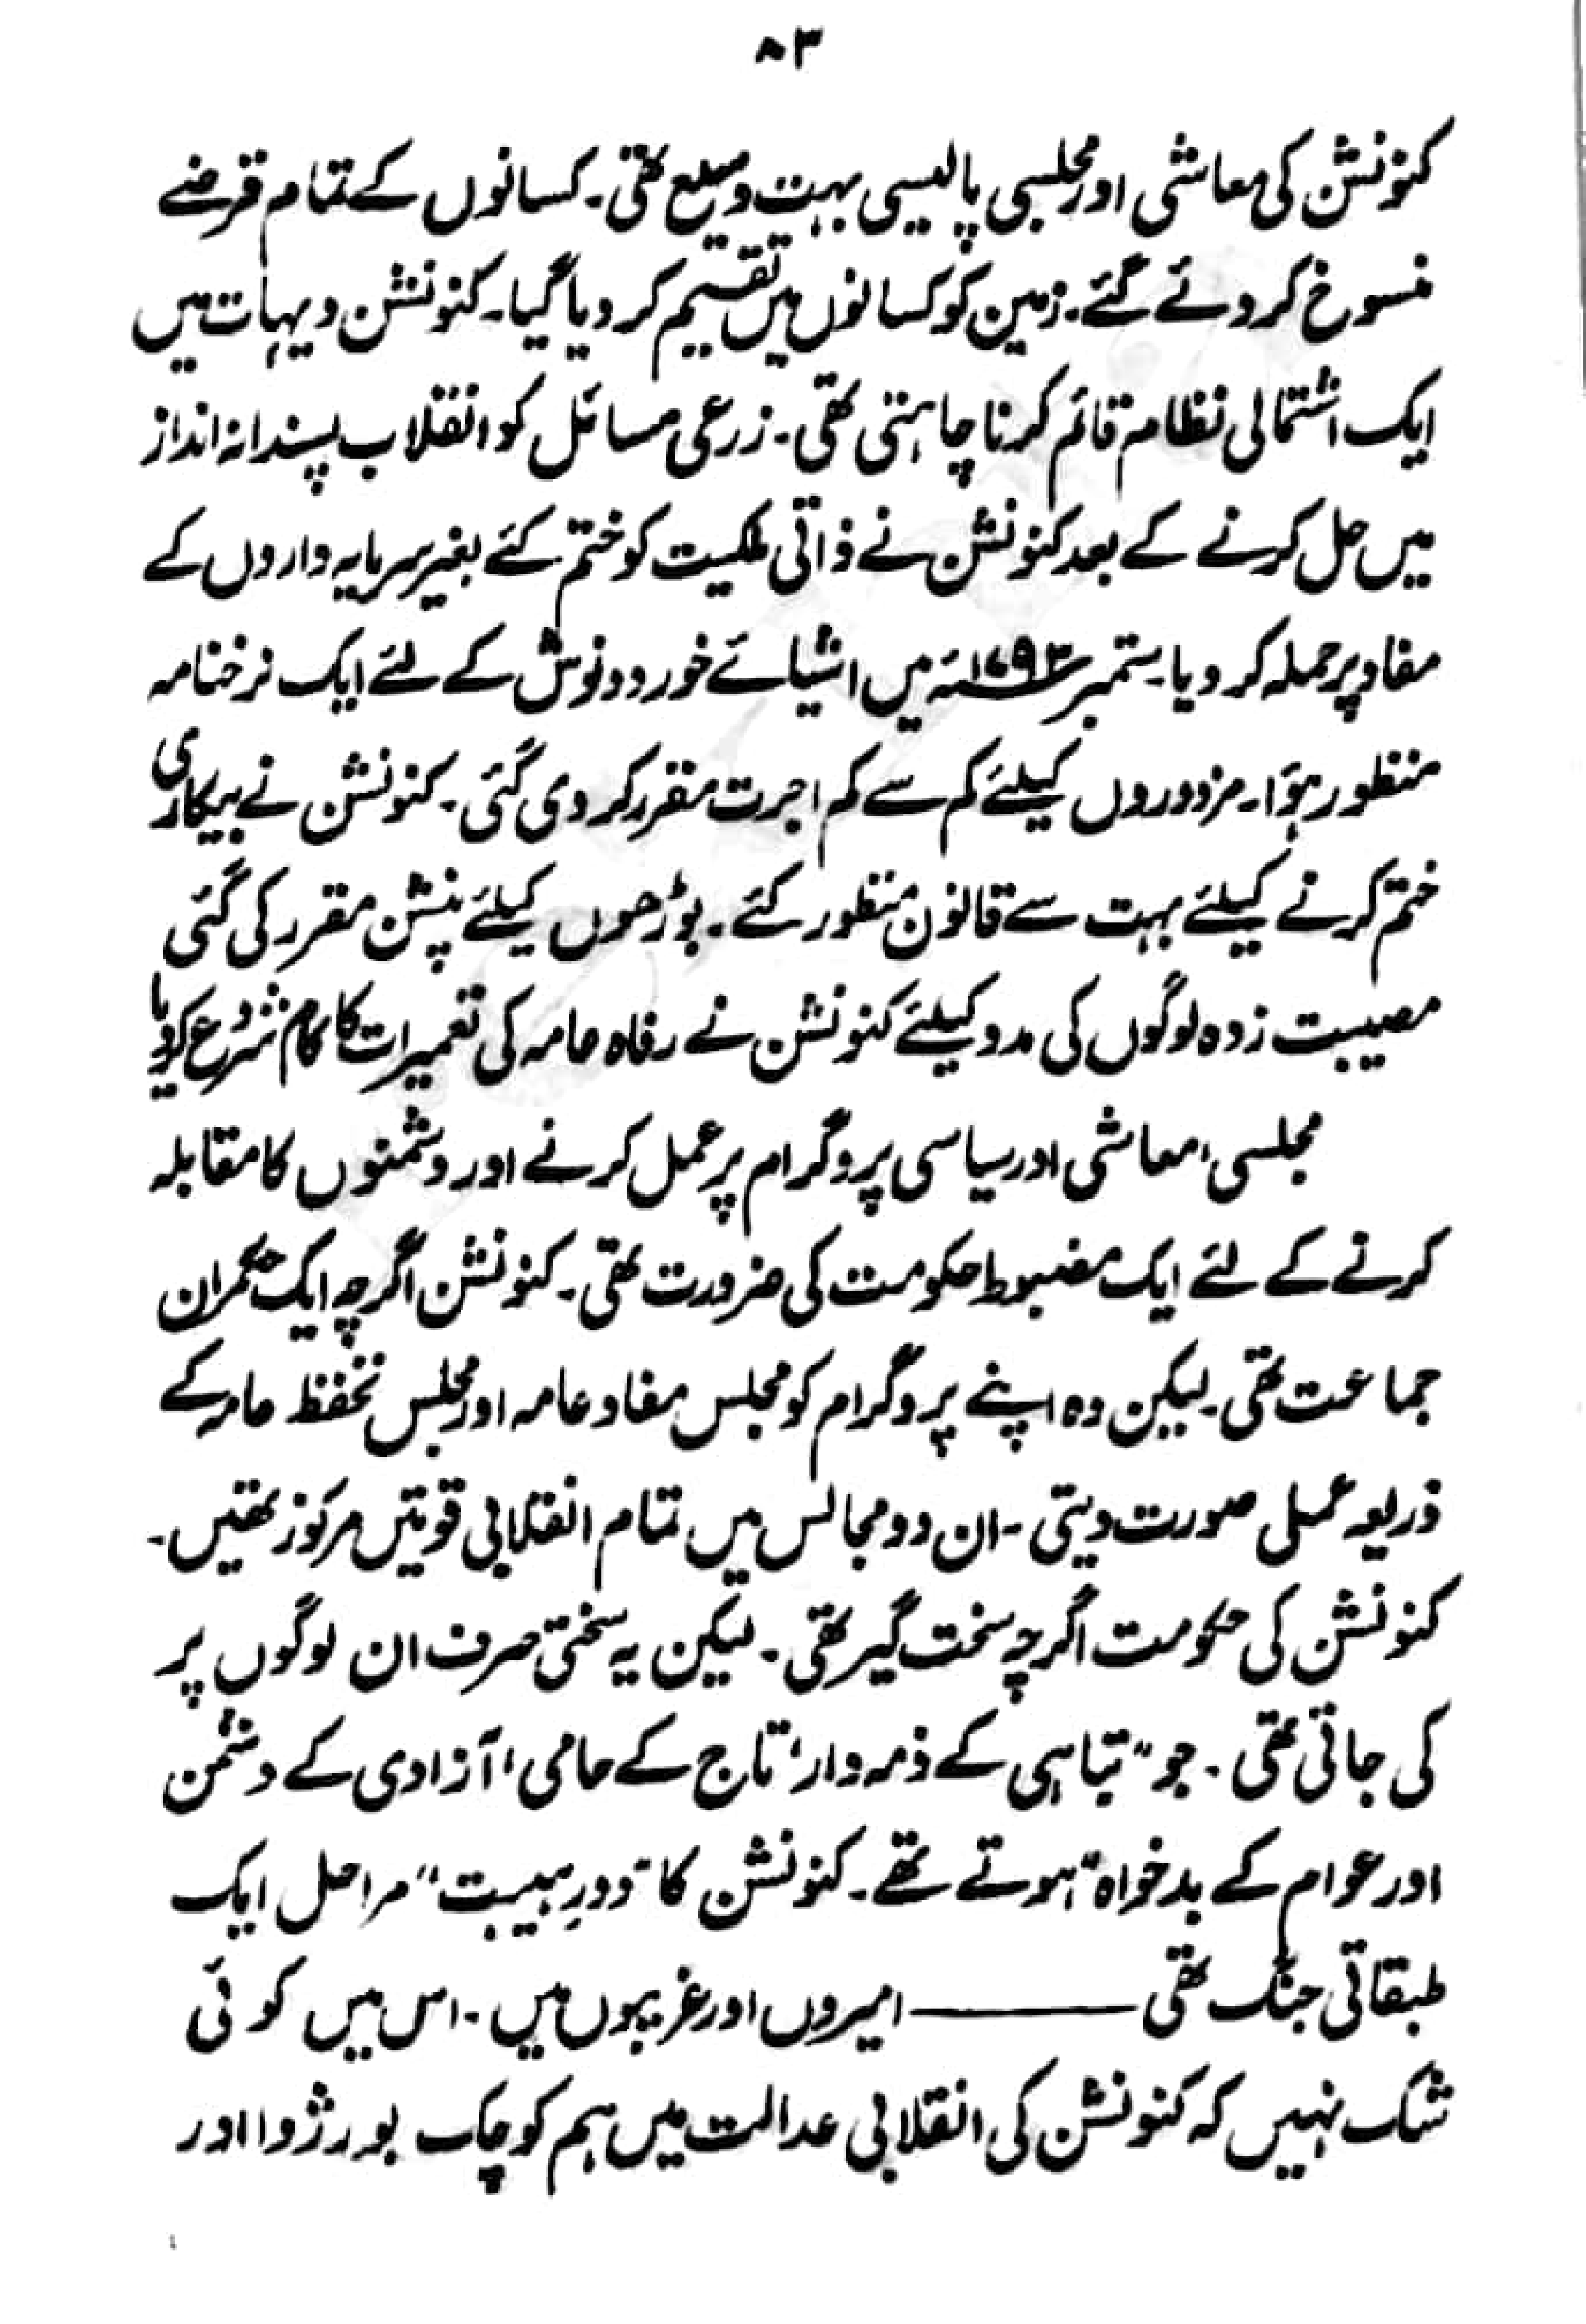 ۸۳
کنونشن کی معاشی اور مجلسی پالیسی بہت وسیع تھی۔ کسانوں کے تمام قرضے
منسوخ کر دئے گئے۔ زمین کو کسانوں میں تقسیم کر دیا گیا۔ کنونشن دیہات میں
ایک اشتمالی نظام قائم کرنا چاہتی تھی۔ زرعی مسائل کو انقلاب پسندانہ انداز
میں حل کرنے کے بعد کنونشن نے ذاتی ملکیت کو ختم کئے بغیر سرمایہ داروں کے
مفاد پر حملہ کر دیا۔ ستمبر ۱۷۹۳ء میں اشیائے خور دونوش کے لئے ایک نرخنامہ
منظور ہؤا۔ مزدوروں کیلئے کم سے کم اجرت مقرر کر دی گئی۔ کنونشن نے بیکاری
ختم کرنے کیلئے بہت سے قانون منظور کئے۔ بوڑھوں کیلئے پنشن مقرر کی گئی
مصیبت زدہ لوگوں کی مدد کیلئے کنونشن نے رفاہ عامہ کی تعمیرات کا کام شروع کر دیا
مجلسی، معاشی اور سیاسی پروگرام پر عمل کرنے اور دشمنوں کا مقابلہ
کرنے کے لئے ایک مضبوط حکومت کی ضرورت تھی۔ کنونشن اگرچہ ایک حکمران
جماعت تھی۔ لیکن وہ اپنے پروگرام کو مجلس مفاد عامہ اور مجلس تحفظ عامہ کے
ذریعہ عملی صورت دیتی ۔ ان دو مجالس میں تمام انقلابی قوتیں مرکوز تھیں۔
کنونشن کی حکومت اگرچہ سخت گیر تھی۔ لیکن یہ سختی صرف ان لوگوں پر
کی جاتی تھی ۔ جو "تباہی کے ذمہ دار، تاج کے حامی، آزادی کے دشمن
اور عوام کے بدخواہ" ہوتے تھے۔ کنونشن کا "دورِ ہیبت" مراحل ایک
طبقاتی جنگ تھی ——— امیروں اور غریبوں میں ۔ اس میں کوئی
شک نہیں کہ کنونشن کی انقلابی عدالت میں ہم کوچک بورژوا اور